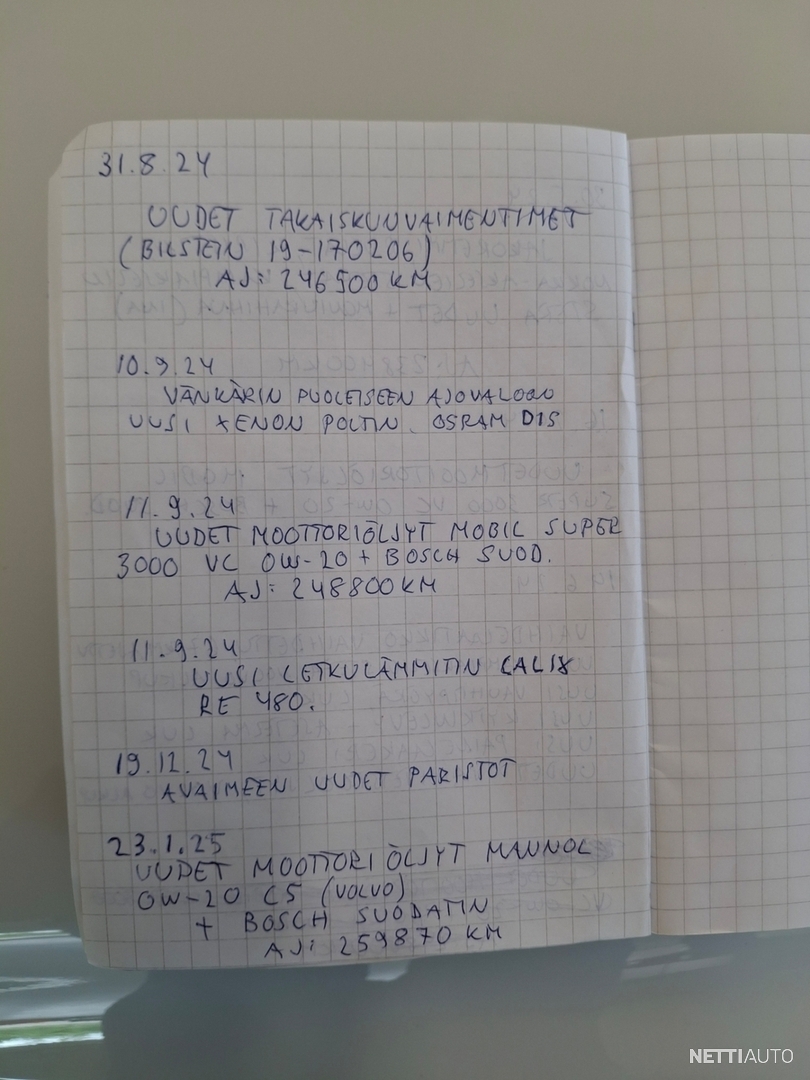 31.8.24
UUDET TAKAISKUNVAIMENTIMET
(BILSTEIN 19-170206)
AJ: 246500 KM
10.9.24
VÄNKÄRIN PUOLEISEEN AJOVALOON
UUSI XENON POLTIN. OSRAM D1S
11.9.24
UUDET MOOTTORIÖLJYT MOBIL SUPER
3000 VC 0W-20 + BOSCH SUOD.
AJ: 248800 KM
11.9.24
UUSI LETKULÄMMITIN CALIX
RE 480.
19.12.24
AVAIMEEN UUDET PARISTOT
23.1.25
UUDET MOOTTORIÖLJYT MANNOL
0W-20 C5 (VOLVO)
+ BOSCH SUODATIN
AJ: 259870 KM
NETTIAUTO